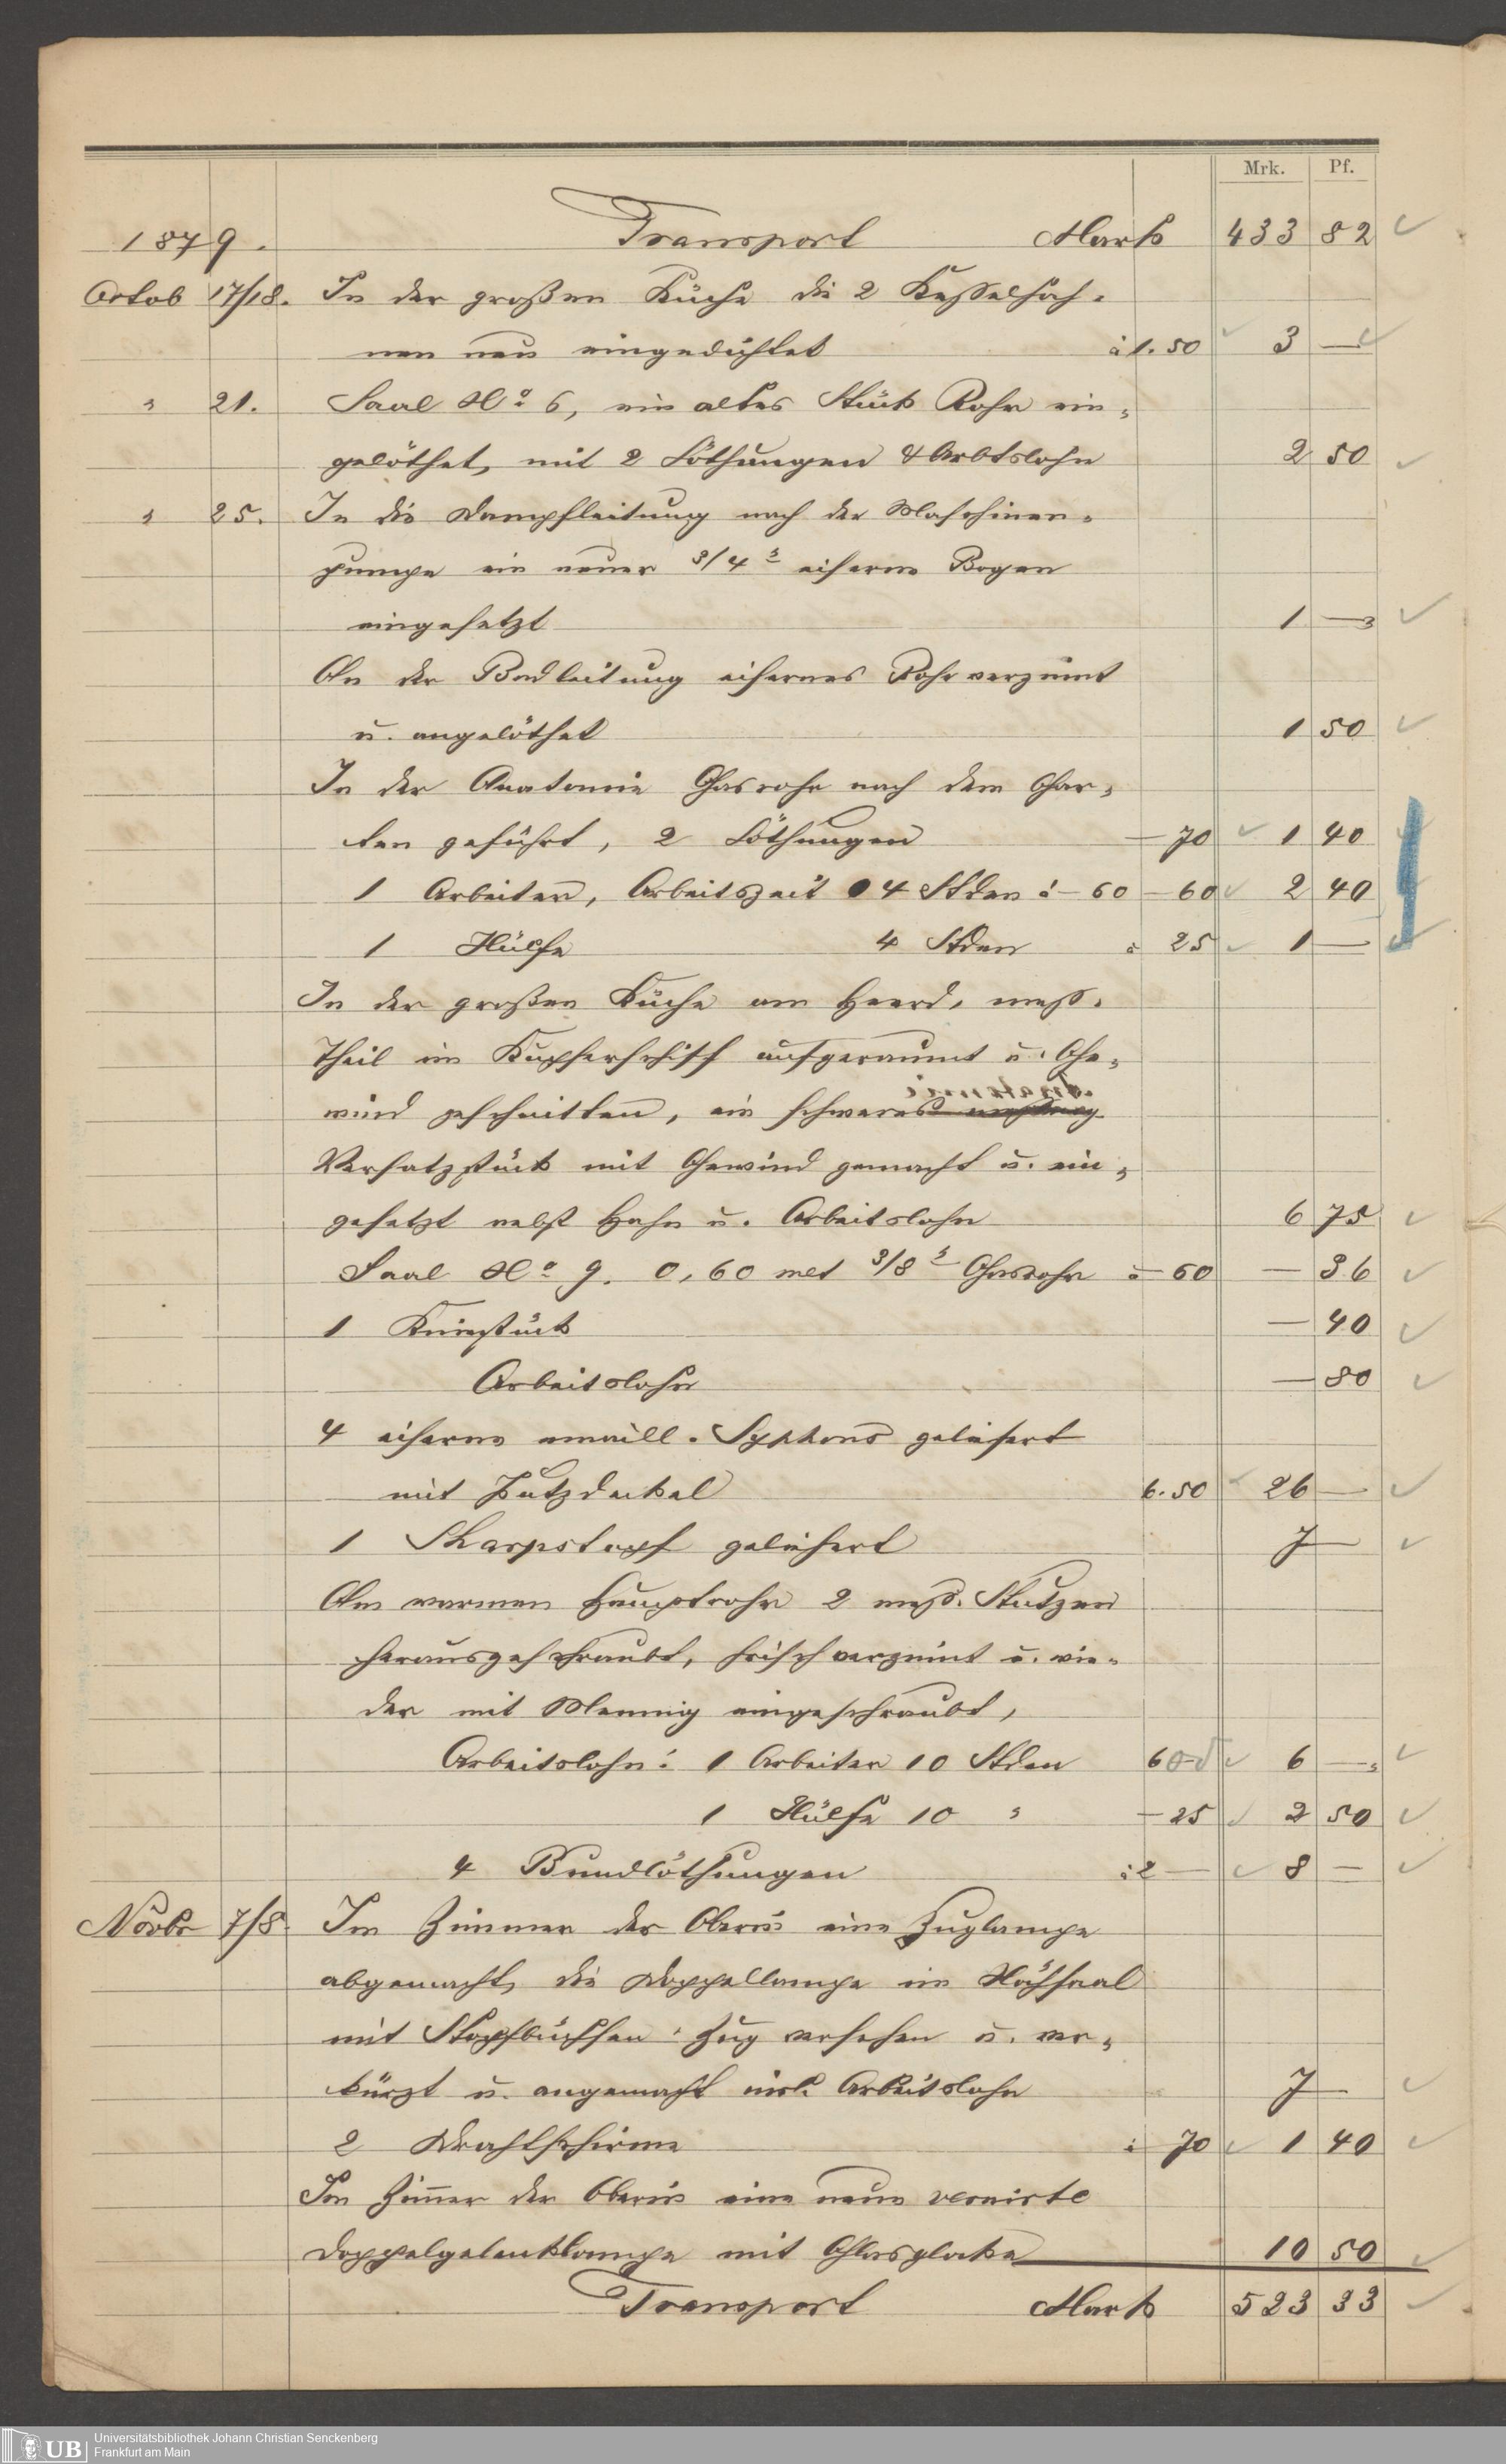 Mrk. Pf.
1879. Transport Mark 433 82
Octob 17/18. In der großen Küche die 2 Kesselhäh-
nen neu eingedichtet à 1.50 3 —
" 21. Saal No 6, ein altes Stück Rohr ein-
gelöthet, mit 2 Löthungen & Arbtslohn 2 50
" 25. In die Dampfleitung nach der Maschinen-
pumpe ein neuer 3/4" eiserne Bogen
eingesetzt 1 —
An der Badleitung eisernes Rohr verzinnt
u. angelöthet 1 50
In der Anatomie Gasrohr nach dem Gar-
ten geführt, 2 Löthungen — 70 1 40
1 Arbeiter, Arbeitszeit 4 Stden à — 60 — 60 2 40
1 Hülfe 4 Stden à 25 1 —
In der großen Küche am Heerd, mess.
Theil im Kupferschiff aufgeraumt u. Ge-
wind geschnitten, ein schweres
Versatzstück mit Gewind gemacht u. ein-
gesetzt nebst Hahn u. Arbeitslohn 6 75
Saal No 9. 0,60 met 3/8" Gasrohr à — 60 — 36
1 Kniestück — 40
Arbeitslohn — 80
4 eiserne emaill. Syphons geliefert
mit Putzdeckel 6.50 26 —
1 Sharpstopf geliefert 7 —
Am warmen Hauptrohr 2 mess. Stutzen
herausgeschraubt, frisch verzinnt u. wie-
der mit Mennig eingeschraubt,
Arbeitslohn: 1 Arbeiter 10 Stden 60 6 —
1 Hülfe 10 " — 25 2 50
4 Bundlöthungen à 2 — 8 —
Novbr 7/8. Im Zimmer der Oberin eine Zuglampe
abgemacht, die Doppellampe im Nähsaal
mit Stopfbüchsen-Zug versehen u. ver-
kürzt u. angemacht incl. Arbeitslohn 7 —
2 Drahtschirme à 70 1 40
Im Zimmer der Oberin eine neue vernirte
Doppelgelenklampe mit Glasglocke 10 50
Transport Mark 523 33
UB
Universitätsbibliothek Johann Christian Senckenberg
Frankfurt am Main